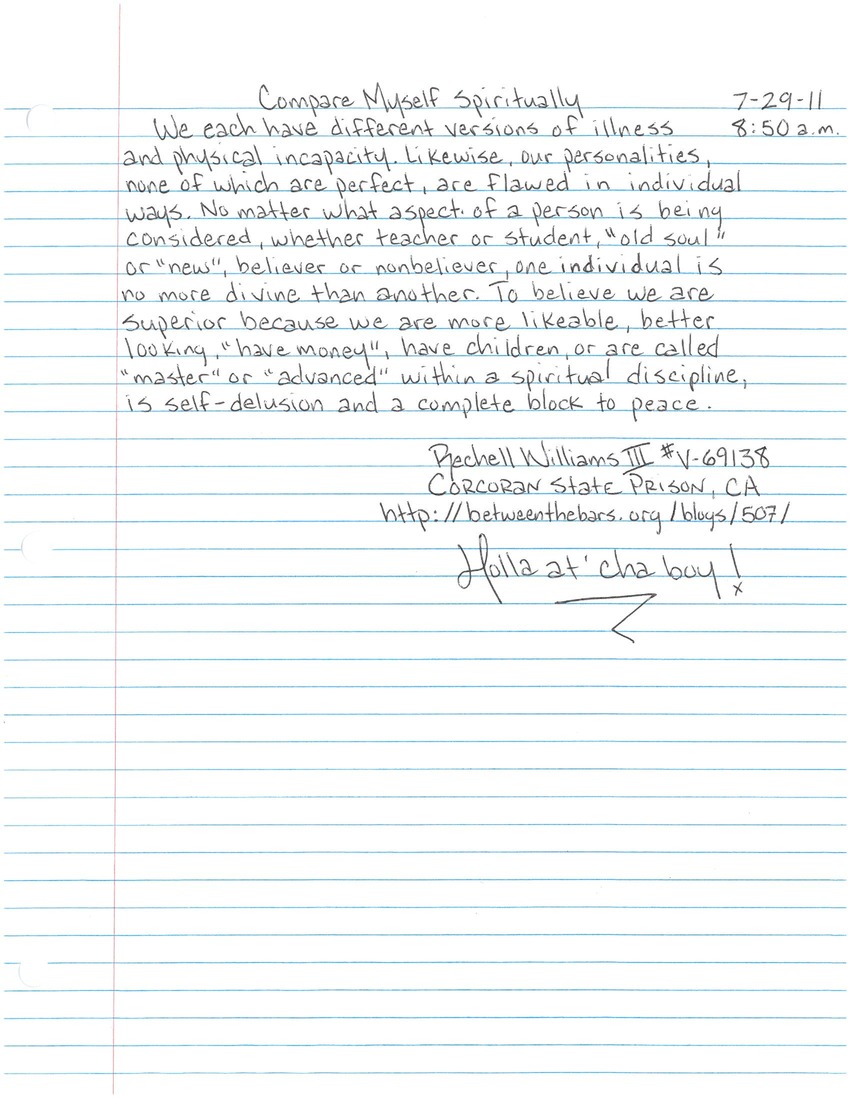 Compare Myself Spiritually 7-29-11
We each have different versions of illness 8:50 a.m.
and physical incapacity. Likewise, our personalities,
none of which are perfect, are flawed in individual
ways. No matter what aspect of a person is being
considered, whether teacher or student, "old soul"
or "new", believer or nonbeliever, one individual is
no more divine than another. To believe we are
superior because we are more likeable, better
looking, "have money", have children, or are called
"master" or "advanced" within a spiritual discipline,
is self-delusion and a complete block to peace.
Rechell Williams III #V-69138
Corcoran State Prison, CA
http://betweenthebars.org/blogs/507/
Holla at' cha boy!
x